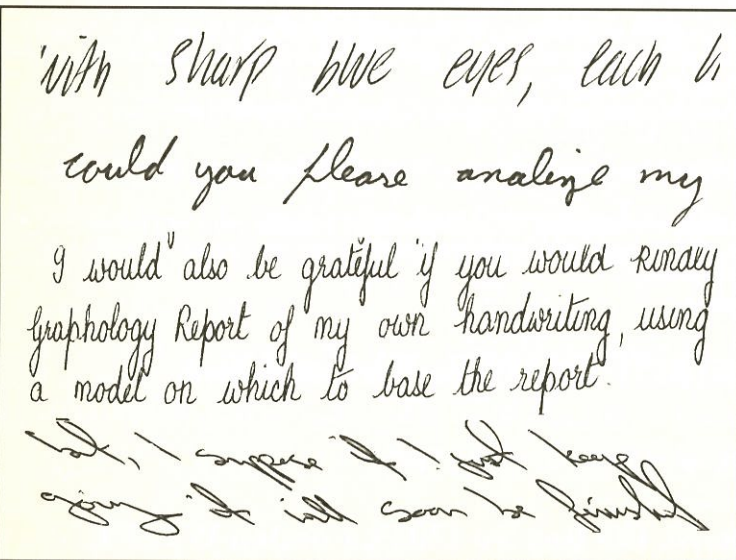 with sharp blue eyes, each h
could you please analize my
I would also be grateful if you would kindly
Graphology Report of my own handwriting, using
a model on which to base the report.
but, I suppose if I just keep
going it will soon be finished